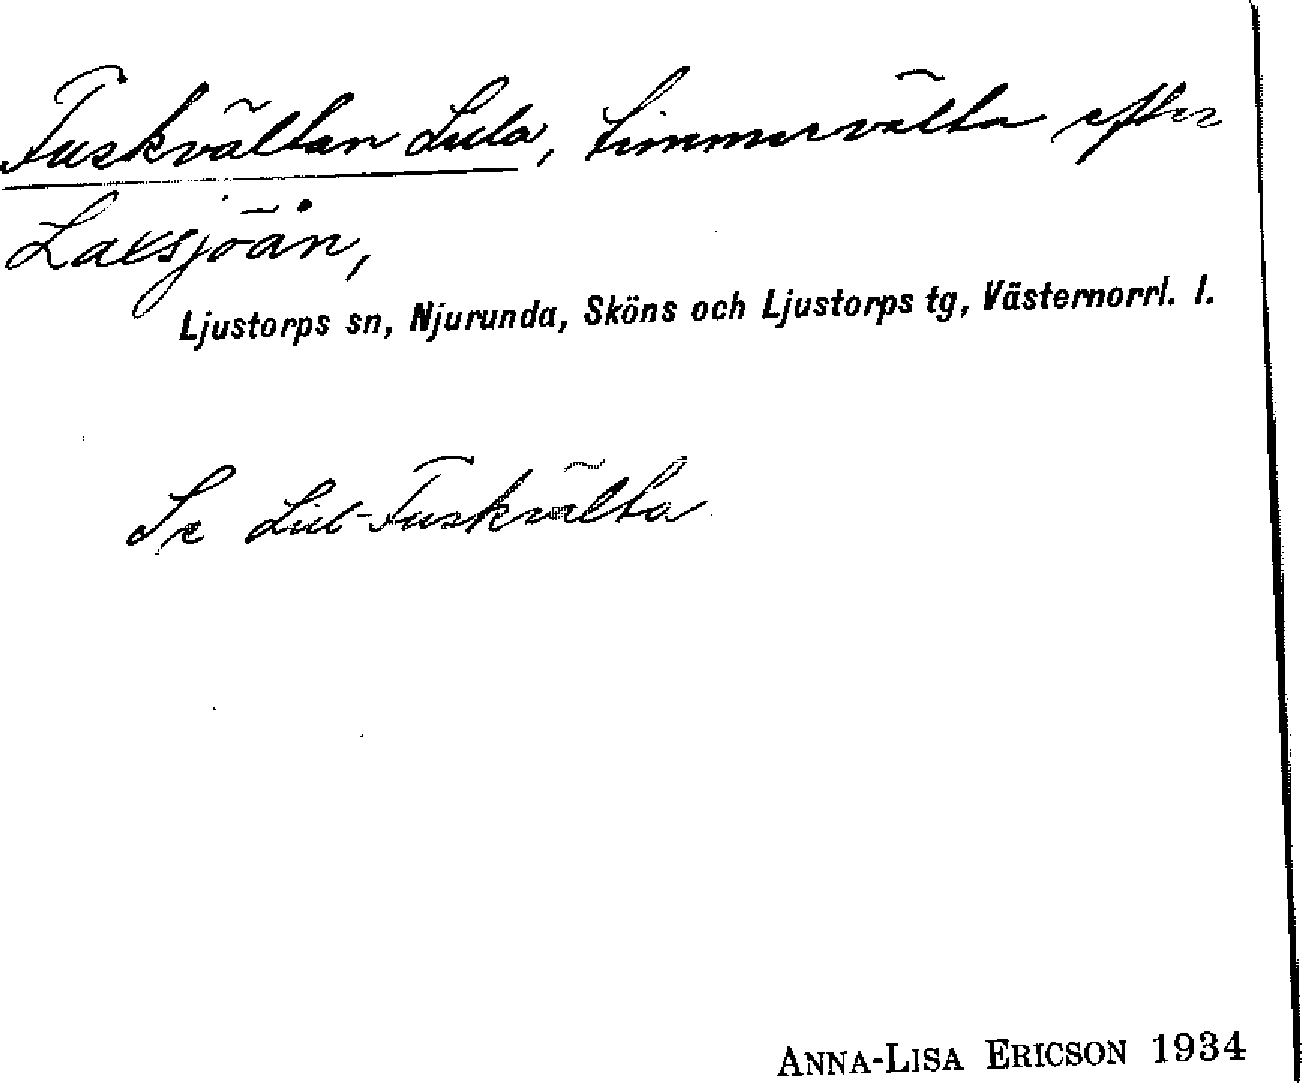 Tuskvältan Lula, timmervälta efter
Laxsjöån,
Ljustorps sn, Njurunda, Sköns och Ljustorps tg, Västernorrl. l.
Se Lill-Tuskvälta
ANNA-LISA ERICSON 1934